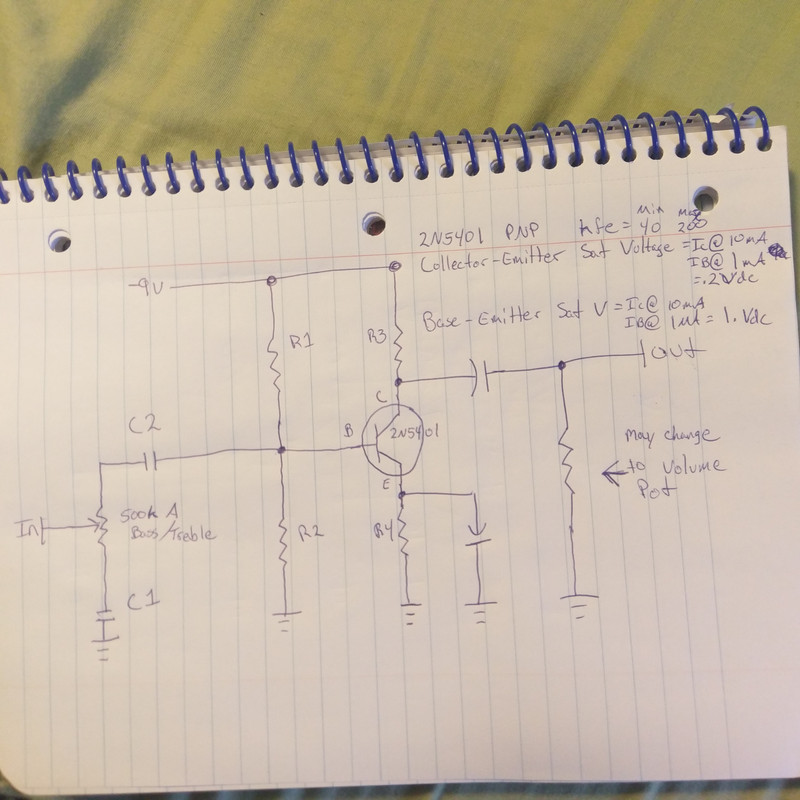 2N5401 PNP hfe = min 40 max 200
Collector-Emitter Sat Voltage = Ic@ 10mA
IB@ 1mA
= .2Vdc
Base-Emitter Sat V = Ic@ 10mA
IB@ 1mA = 1. Vdc
-9V
R1
R3
out
C
C2
B
2N5401
may change
to volume
Pot
E
In
500k A
Bass/Treble
R2
R4
C1